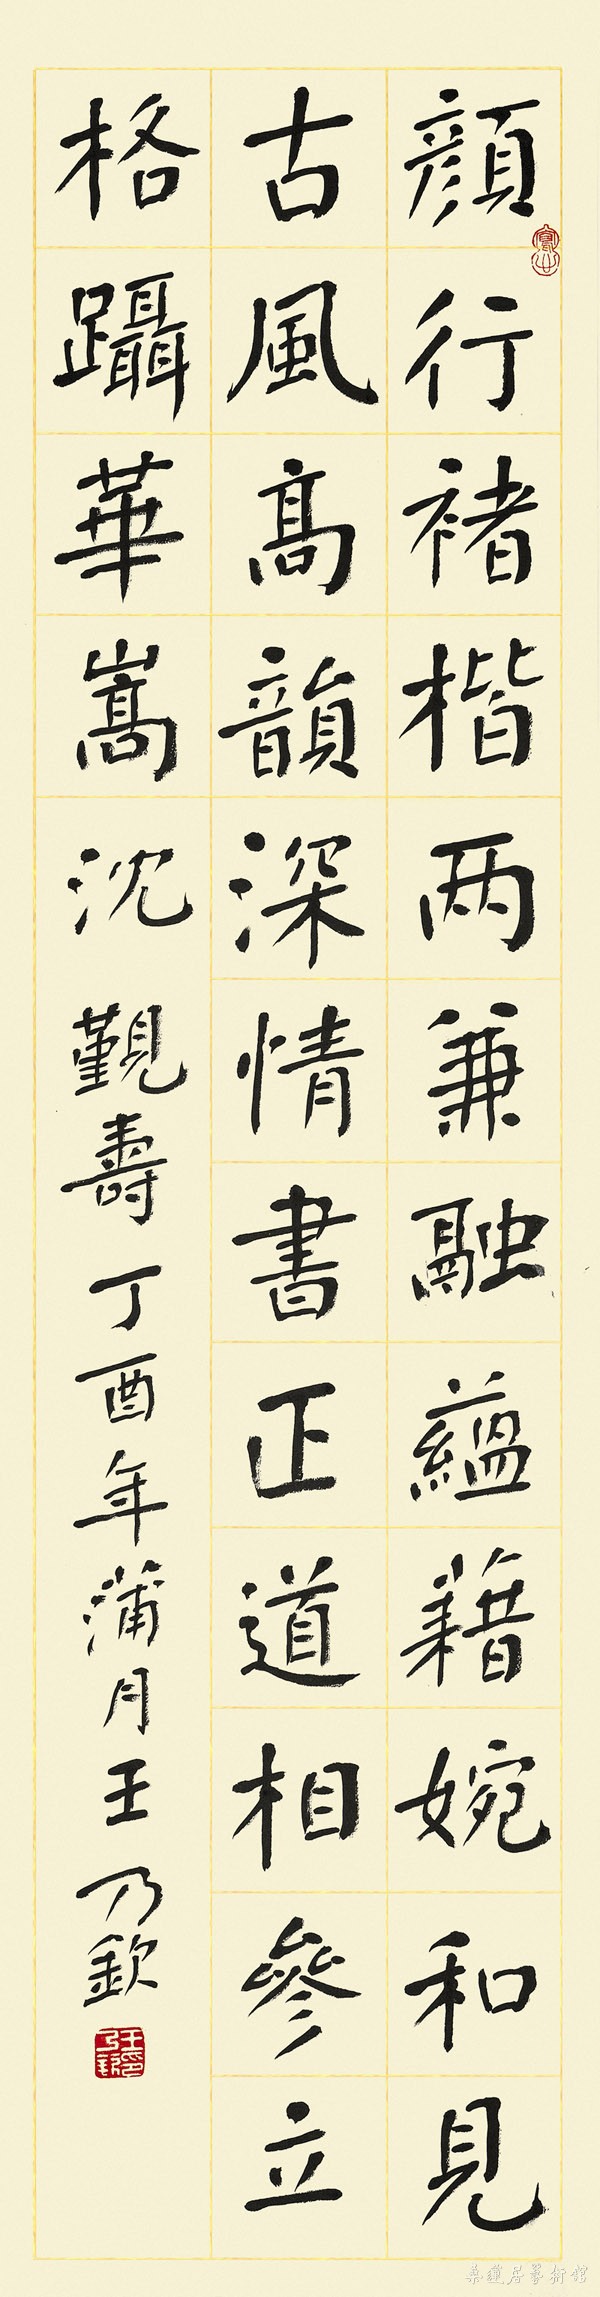 顔行褚楷两兼融蘊藉婉和見
古風髙韻深情書正道相參立
格躡華嵩 沈覲壽丁酉年蒲月王乃欽
桑蓮居藝術館